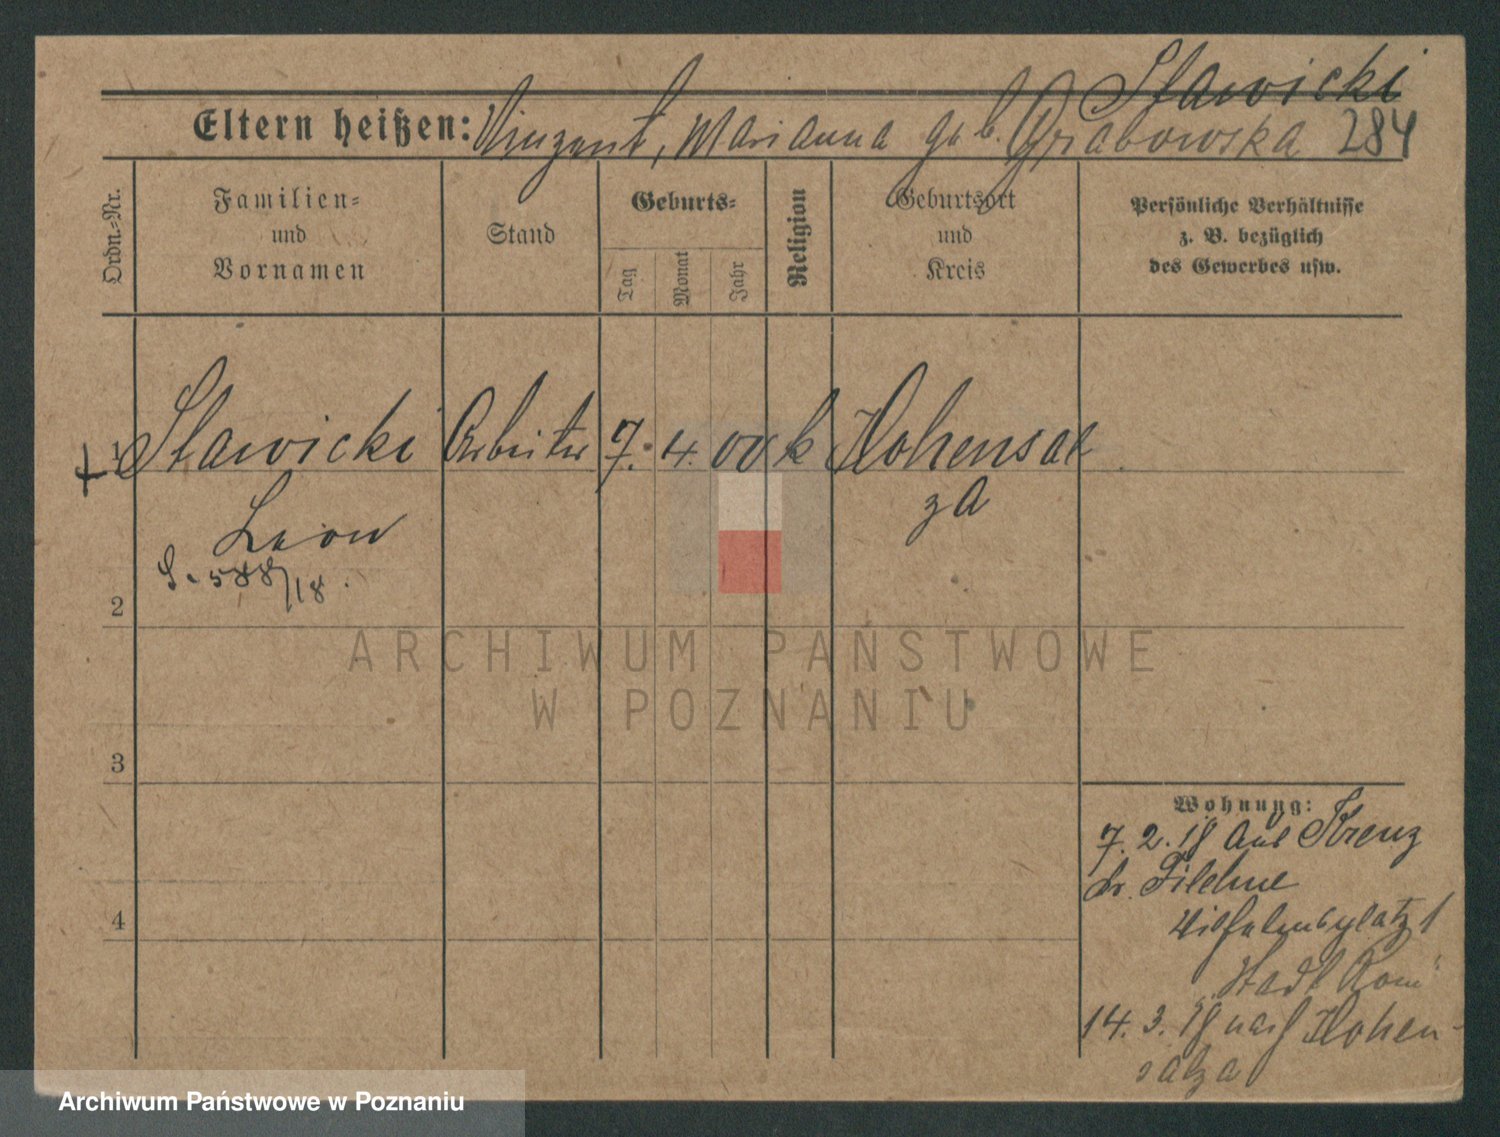 Slawicki
Eltern heißen: Vinzent, Marianna geb. Grabowska 284
Ordn.-Nr.
Familien-
und
Vornamen
Stand
Geburts-
Tag
Monat
Jahr
Religion
Geburtsort
und
Kreis
Persönliche Verhältnisse
z. B. bezüglich
des Gewerbes usw.
1 Slawicki Arbeiter 7. 4. 00 k Hohensal
za
Leon
S. 588/18.
2
3
4
Wohnung:
7. 2. 18 aus Kreuz
Kr. Filehne
Wilhelmsplatz 1
"Stadt Rom"
14. 3. 18 nach Hohen-
salza
ARCHIWUM PAŃSTWOWE
W POZNANIU
Archiwum Państwowe w Poznaniu